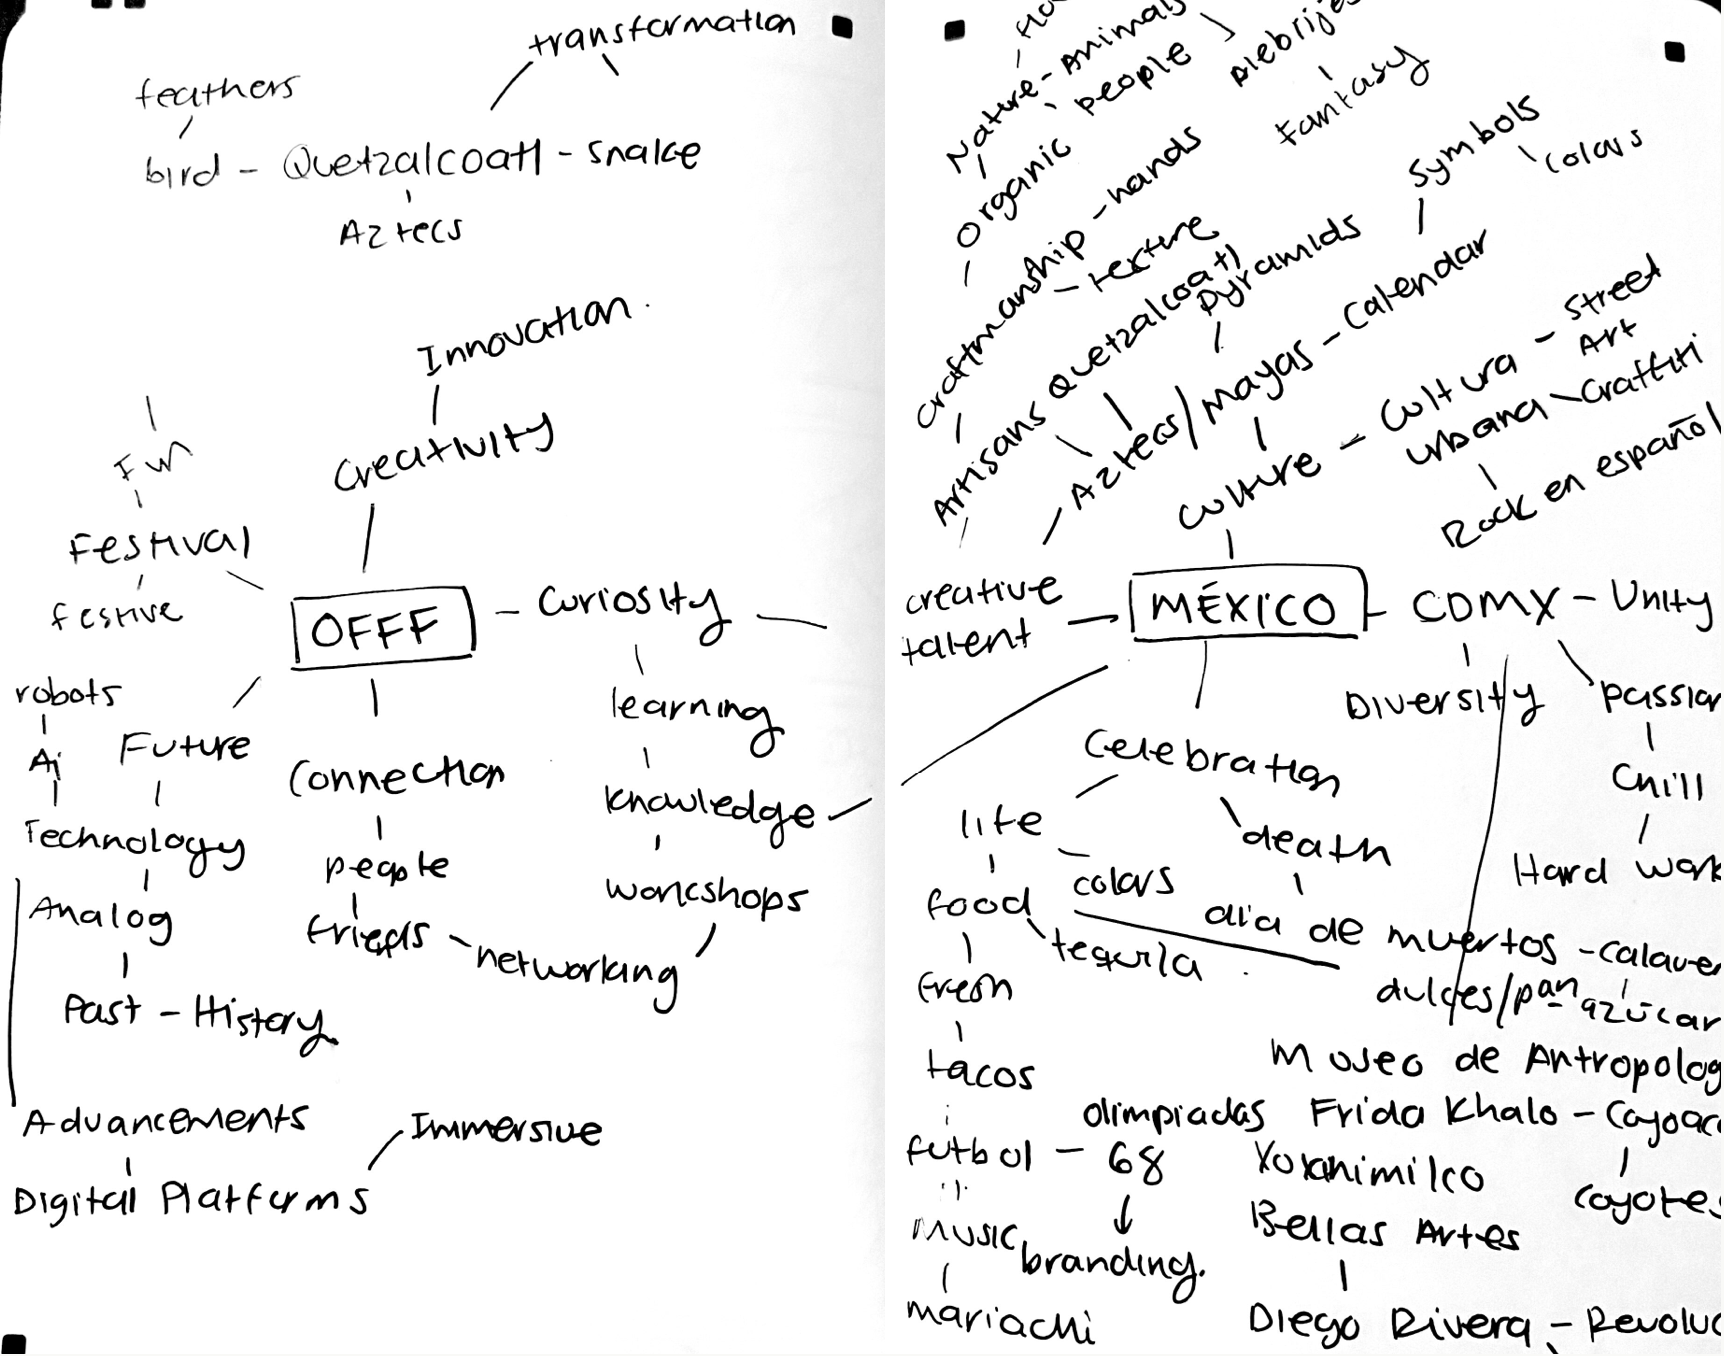 transformation
feathers
bird - Quetzalcoatl - snake
Aztecs
Innovation.
Creativity
Fun
Festival
festive
OFFF - Curiosity
robots
learning
Ai
Future
Connection
knowledge
Technology
people
workshops
Analog
friends - networking
Past - History
Advancements
Immersive
Digital Platforms
Nature - Animals
people
Fantasy
Organic
Symbols
colors
craftmanship - hands
- texture
Pyramids
Artisans Quetzalcoatl
Aztecs/Mayas - Calendar
Culture - Cultura - Street
Art
urbana - Graffiti
Rock en español
creative
talent - MÉXICO - CDMX - Unity
Diversity
Celebration
Chill
life
death
Hard
colors
food
dia de muertos
tequila
fresh
dulces/pan
azúcar
tacos
Museo de
olimpiadas Frida Khalo
futbol - 68
Xoxhimilco
Coyotes
Bellas Artes
music
branding.
mariachi
Diego Rivera